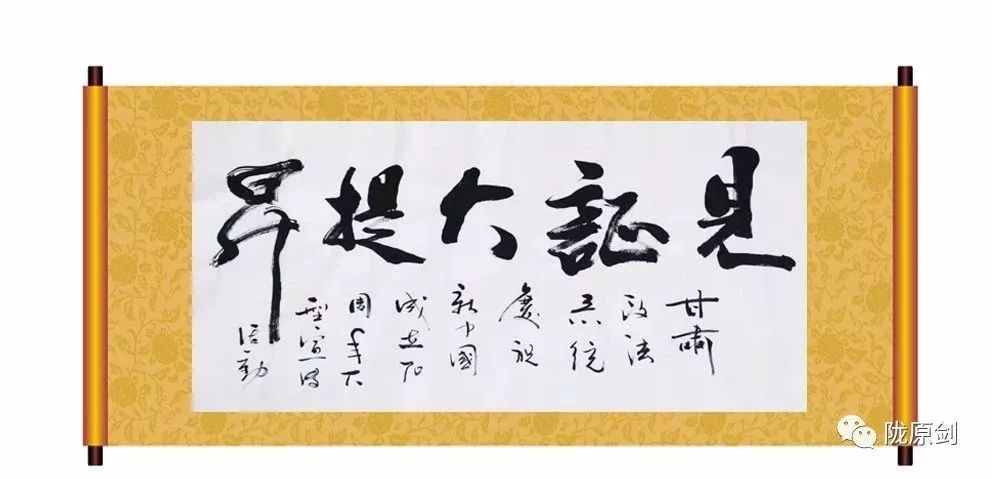 見証大提昇
甘肅
政法
系統
慶祝
新中國
成立70
周年大
型宣傳
活動
陇原剑